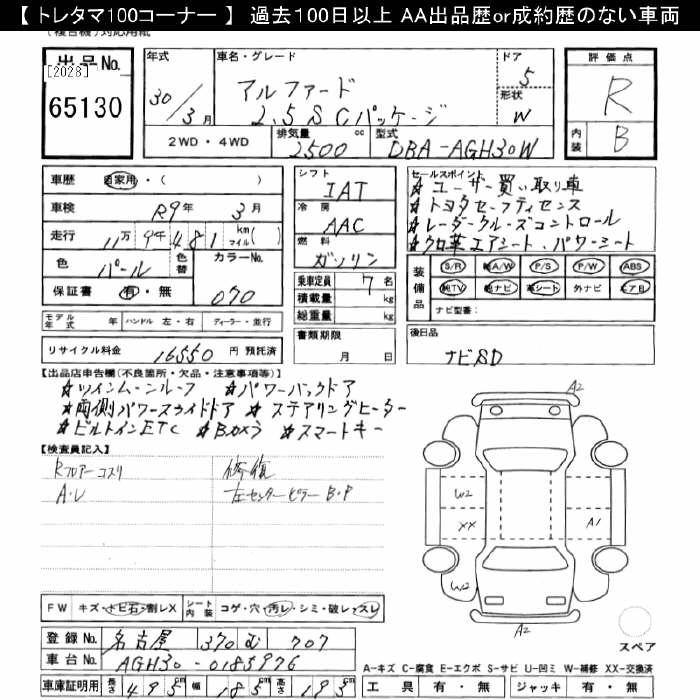 【 トレタマ100コーナー 】 過去100日以上 AA出品歴or成約歴のない車両
出品No.
[2028]
65130
年式
30/3月
車名・グレード
アルファード
2.5 S Cパッケージ
ドア
5
形状
W
評価点
R
内装
B
2WD・4WD
排気量
2500
cc
型式
DBA-AGH30W
車歴 自家用・( )
車検 R9年 3月
走行 11万9千481 km マイル( )
色 パール 色替 カラーNo. 070
保証書 有・無
モデル年式 年 ハンドル 左・右 ディーラー・並行
リサイクル料金 16550 円 預託済
シフト
IAT
冷房
AAC
燃料
ガソリン
乗車定員 7 名
積載量 kg
総重量 kg
書類期限
月 日
セールスポイント
☆ユーザー買い取り車
☆トヨタセーフティセンス
☆レーダークルーズコントロール
☆クロ革エアシート、パワーシート
装備品
S/R 純A/W P/S P/W ABS
純TV 純ナビ 革シート 外ナビ エアB
ナビ型番:
後日品
ナビSD
【出品店申告欄(不良箇所・欠品・注意事項等)】
☆ツインムーンルーフ ☆パワーバックドア
☆両側パワースライドドア ☆ステアリングヒーター
☆ビルトインETC ☆Bカメラ ☆スマートキー
【検査員記入】
Rフロアーコスリ
A・U
修復
左センターピラーB・P
A2
W2
XX
A1
W2
A2
スペア
FW キズ・トビ石・割レX シート内装 コゲ・穴・汚レ・シミ・破レ・スレ
登録No. 名古屋 370 む 707
車台No. AGH30-0185976
車庫証明用 長さ 495 cm 幅 185 cm 高さ 193 cm
A-キズ C-腐食 E-エクボ S-サビ U-凹ミ W-補修 XX-交換済
工具 有・無 ジャッキ 有・無